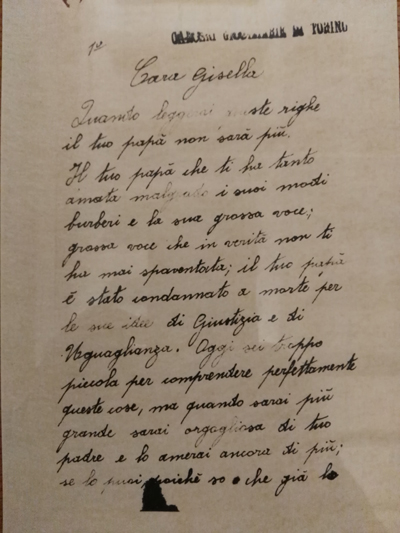 1ª
CARCERI GIUDIZIARIE DI TORINO
Cara Gisella
Quando leggerai queste righe
il tuo papà non sarà più.
Il tuo papà che ti ha tanto
amata malgrado i suoi modi
burberi e la sua grossa voce;
grossa voce che in verità non ti
ha mai spaventata; il tuo papà
è stato condannato a morte per
le sue idee di Giustizia e di
Uguaglianza. Oggi sei troppo
piccola per comprendere perfettamente
queste cose, ma quando sarai più
grande sarai orgogliosa di tuo
padre e lo amerai ancora di più;
se lo puoi, poichè so che già lo